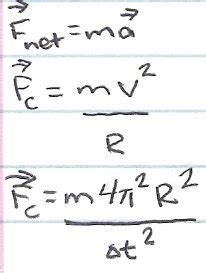 F⃗net = ma⃗
F⃗c = mv²
R
F⃗c = m4π²R²
Δt²